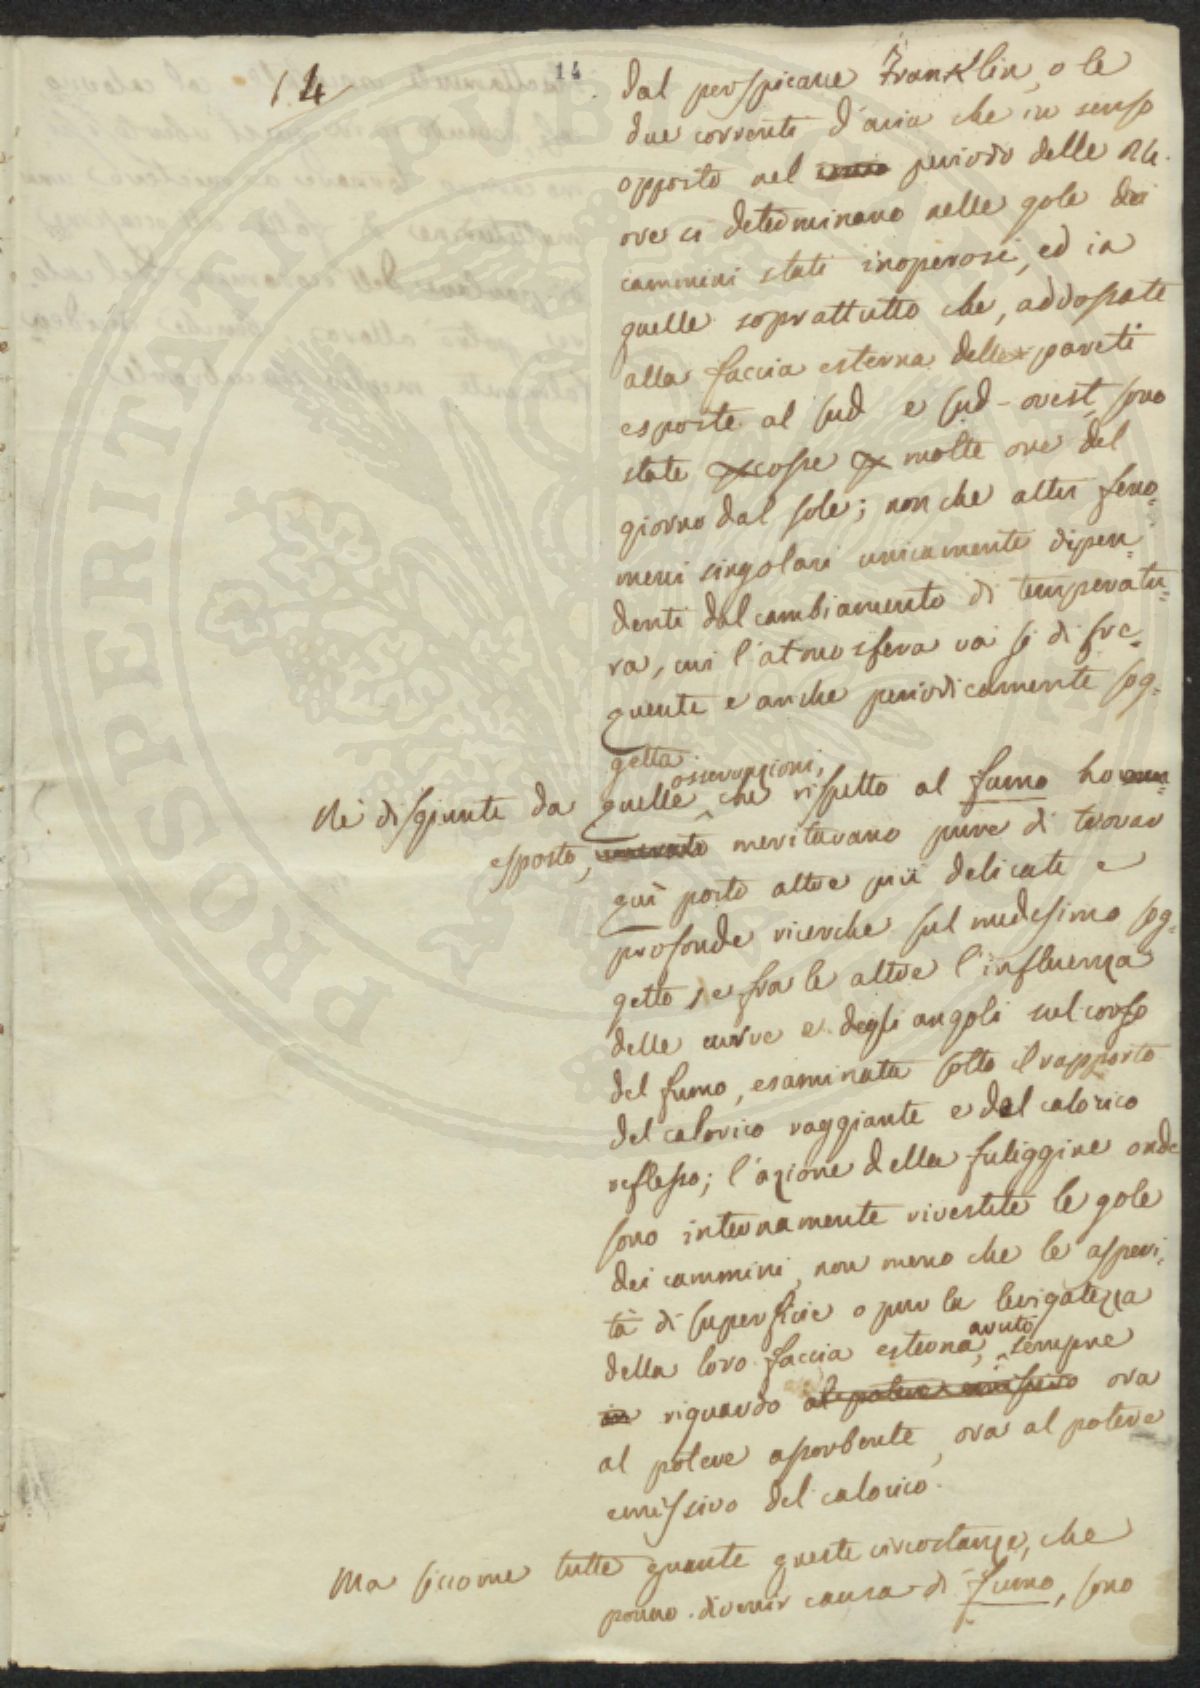 14
14
dal perspicace Franklin, o le
due correnti d'aria che in senso
opposto nel periodo delle 24.
ore si determinano nelle gole dei
cammini stati inoperosi, ed in
quelle soprattutto che, addossate
alla faccia esterna delle pareti
esposte al sud e sud-ovest, sono
state scosse molte ore del
giorno dal sole; non che altri feno=
meni singolari unicamente dipen=
denti dal cambiamento di temperatu=
ra, cui l'atmosfera va sì di fre=
quente e anche periodicamente sog=
getta.
Nè disgiunte da quelle osservazioni, che rispetto al fumo ho
esposto, meritavano pure di trovar
quì posto altre più delicate e
profonde ricerche sul medesimo sog=
getto, e fra le altre l'influenza
delle curve e degli angoli sul corso
del fumo, esaminata sotto il rapporto
del calorico raggiante e del calorico
reflesso; l'azione della fuliggine onde
sono internamente rivestite le gole
dei cammini, non meno che le asperi=
tà di superficie o pur la levigatezza
della loro faccia esterna, avuto sempre
riguardo ora
al potere assorbente, ora al potere
emissivo del calorico.
Ma siccome tutte quante queste circostanze, che
ponno divenir causa di fumo, sono
PROSPERITATI PUBLICAE